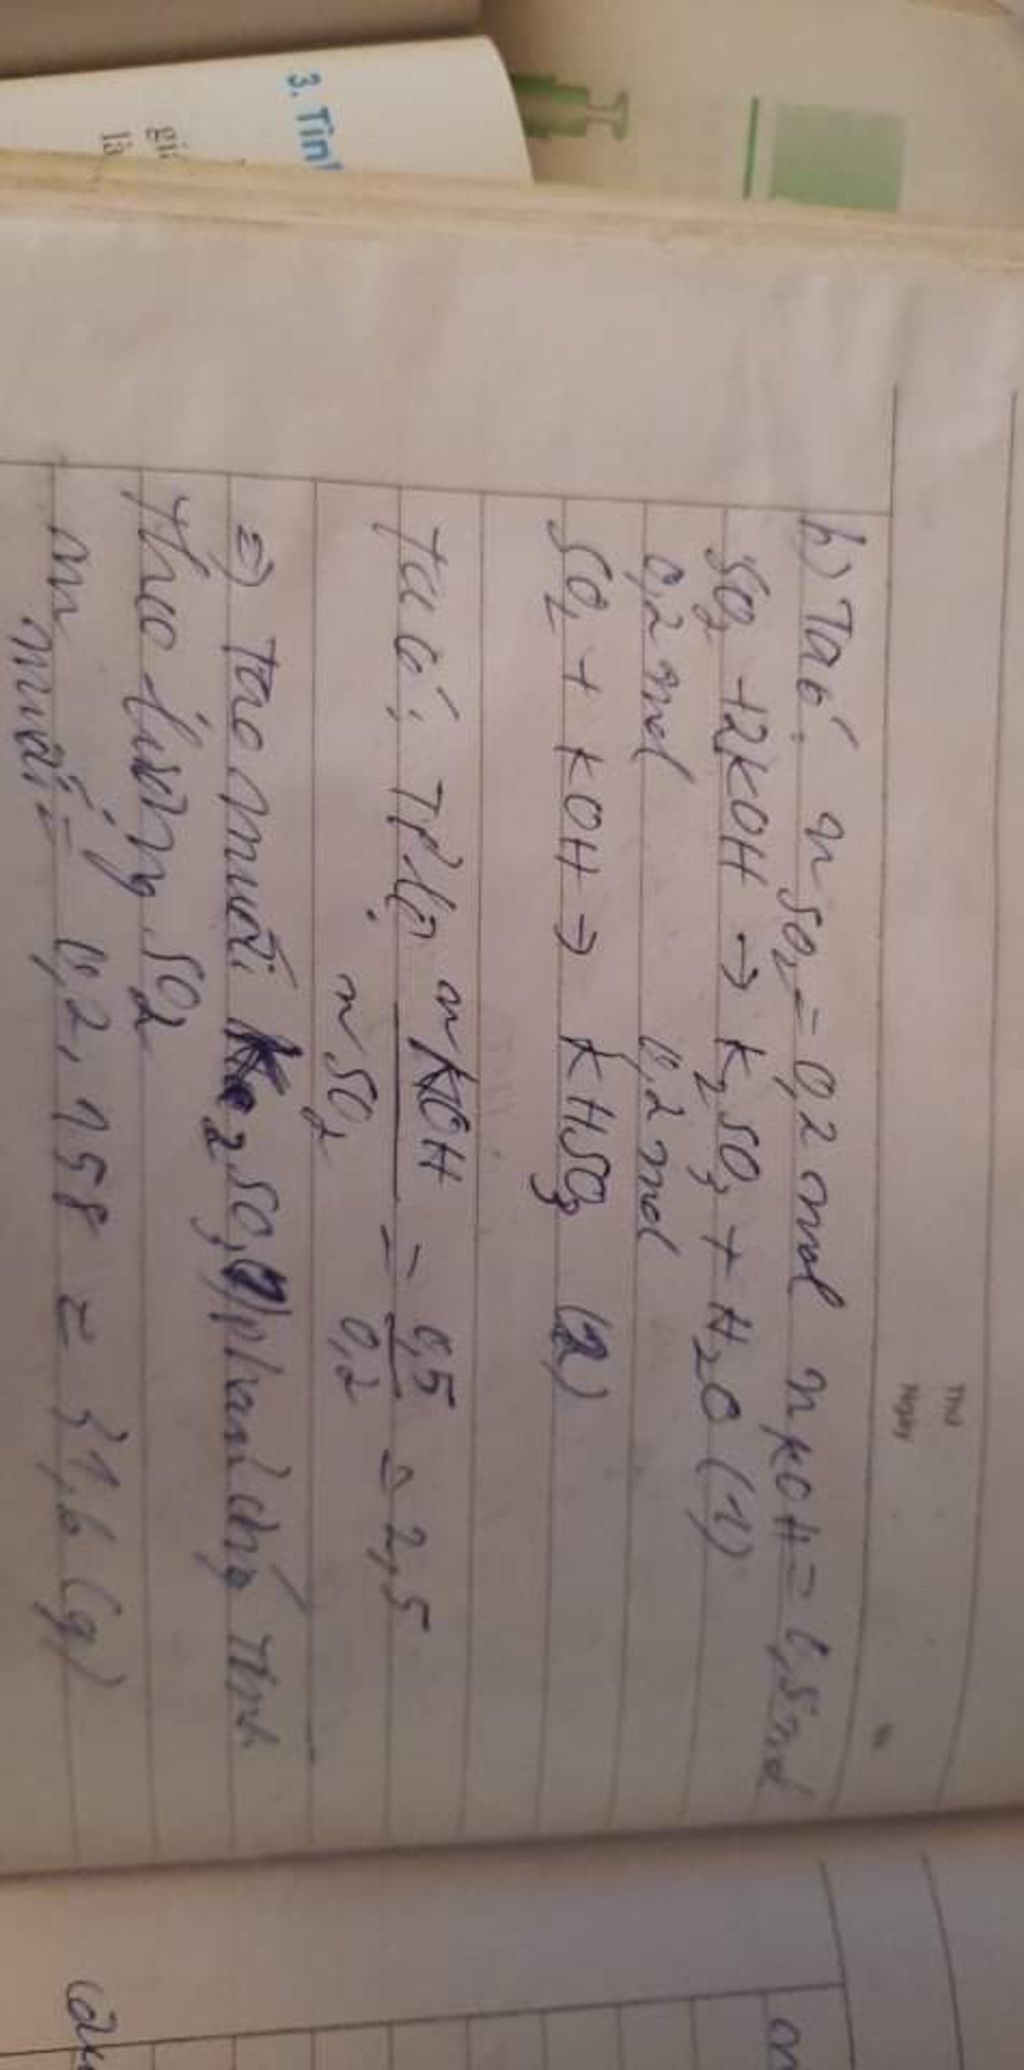 3. Tính
gi
là
Thứ
Ngày
No
b) Ta có: n SO₂ = 0,2 mol n KOH = 0,5 mol
SO₂ + 2KOH → K₂SO₃ + H₂O (1)
0,2 mol 0,2 mol
SO₂ + KOH → KHSO₃ (2)
ta có: Tỉ lệ nKOH / nSO₂ = 0,5 / 0,2 = 2,5
=> Tạo muối K₂SO₃ (1) phản ứng Tính
theo lượng SO₂
m muối = 0,2 . 158 = 31,6 (g)